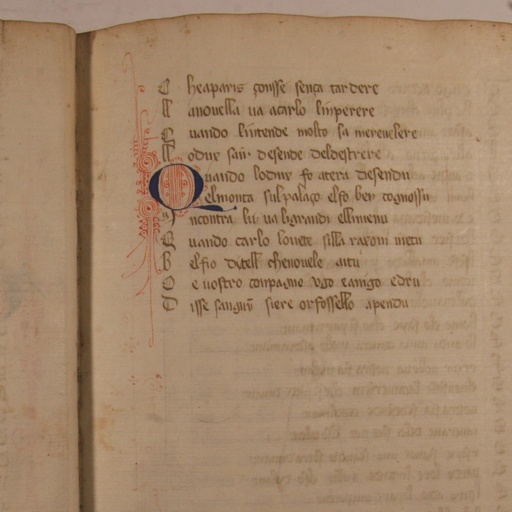 C heaparis gonsse senza tardere
L anouella ua acarlo limperere
Q uando lintende molto sa merauelere
N odur san desende deldestrere
Quando lodur fo atera desendu
elmonta sul palaço elfo ben cognossu
I ncontra lu ua li grandi elli menu
Q uando carlo louete silla raxoni metu
B elsio ditell chenouele aitu
O e uostro conpagne ugo eanigo edru
D isse sanguin siere orfossello apendu